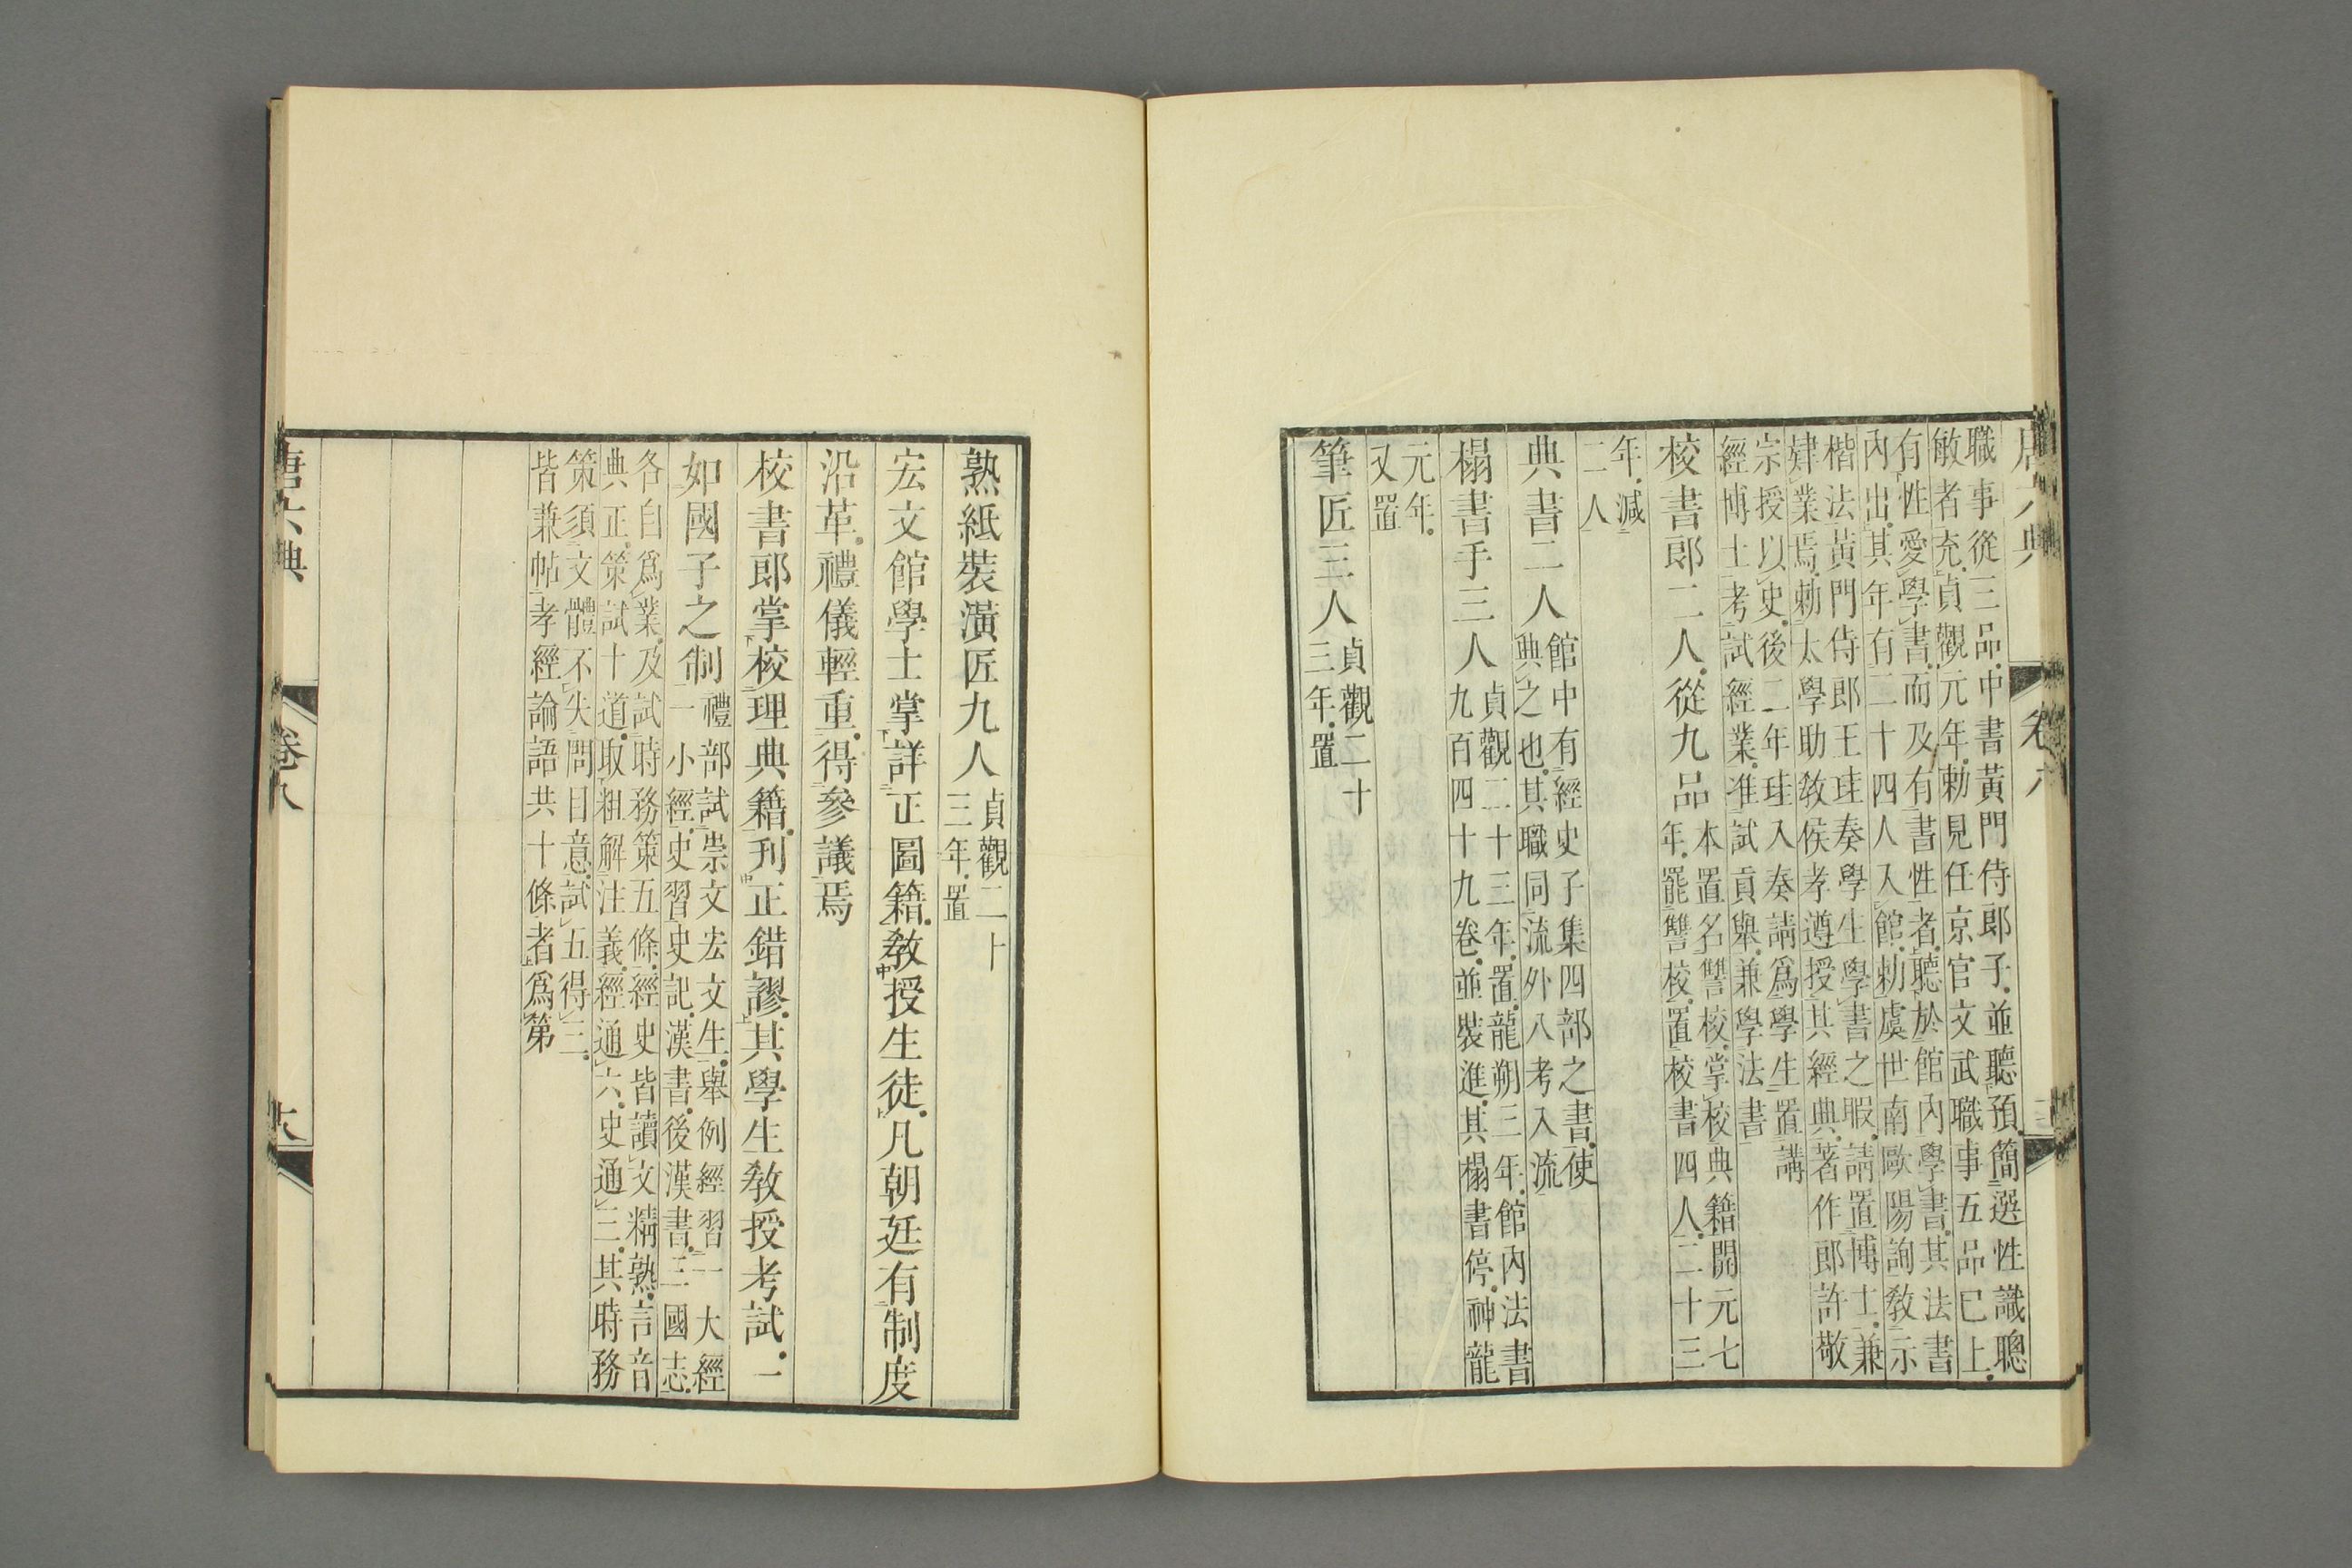 職事從三品中書黃門侍郎子並聽預簡選性識聰
敏者充貞觀元年勅見任京官文武職事五品已上
有性愛學書而及有書性者聽於館內學書其法書
內出其年有二十四人入館勅虞世南歐陽詢敎示
楷法黃門侍郎王珪奏學生學書之暇請置博士兼
肄業焉勅太學助敎侯孝遵授其經典著作郎許敬
宗授以史後二年珪入奏請爲學生置講
經博士考試經業准試貢舉兼學法書
校書郎二人從九品
本置名讐校掌校典籍開元七
年罷讐校置校書四人二十三
年減
二人
典書二人
館中有經史子集四部之書使
典之也其職同流外八考入流
榻書手三人
貞觀二十三年置龍朔三年館內法書
九百四十九卷並裝進其榻書停神龍
元年
又置
筆匠三人
貞觀二十
三年置
熟紙裝潢匠九人
貞觀二十
三年置
宏文館學士掌詳正圖籍敎授生徒凡朝廷有制度
沿革禮儀輕重得參議焉
校書郎掌校理典籍刊正錯謬其學生敎授考試一
如國子之制
禮部試崇文宏文生舉例經習一大經
一小經史習史記漢書後漢書三國志
各自爲業及試時務策五條經史皆讀文精熟言音
典正策試十道取粗解注義經通六史通三其時務
策須文體不失問目意試五得三
皆兼帖孝經論語共十條者爲第
唐六典
卷八